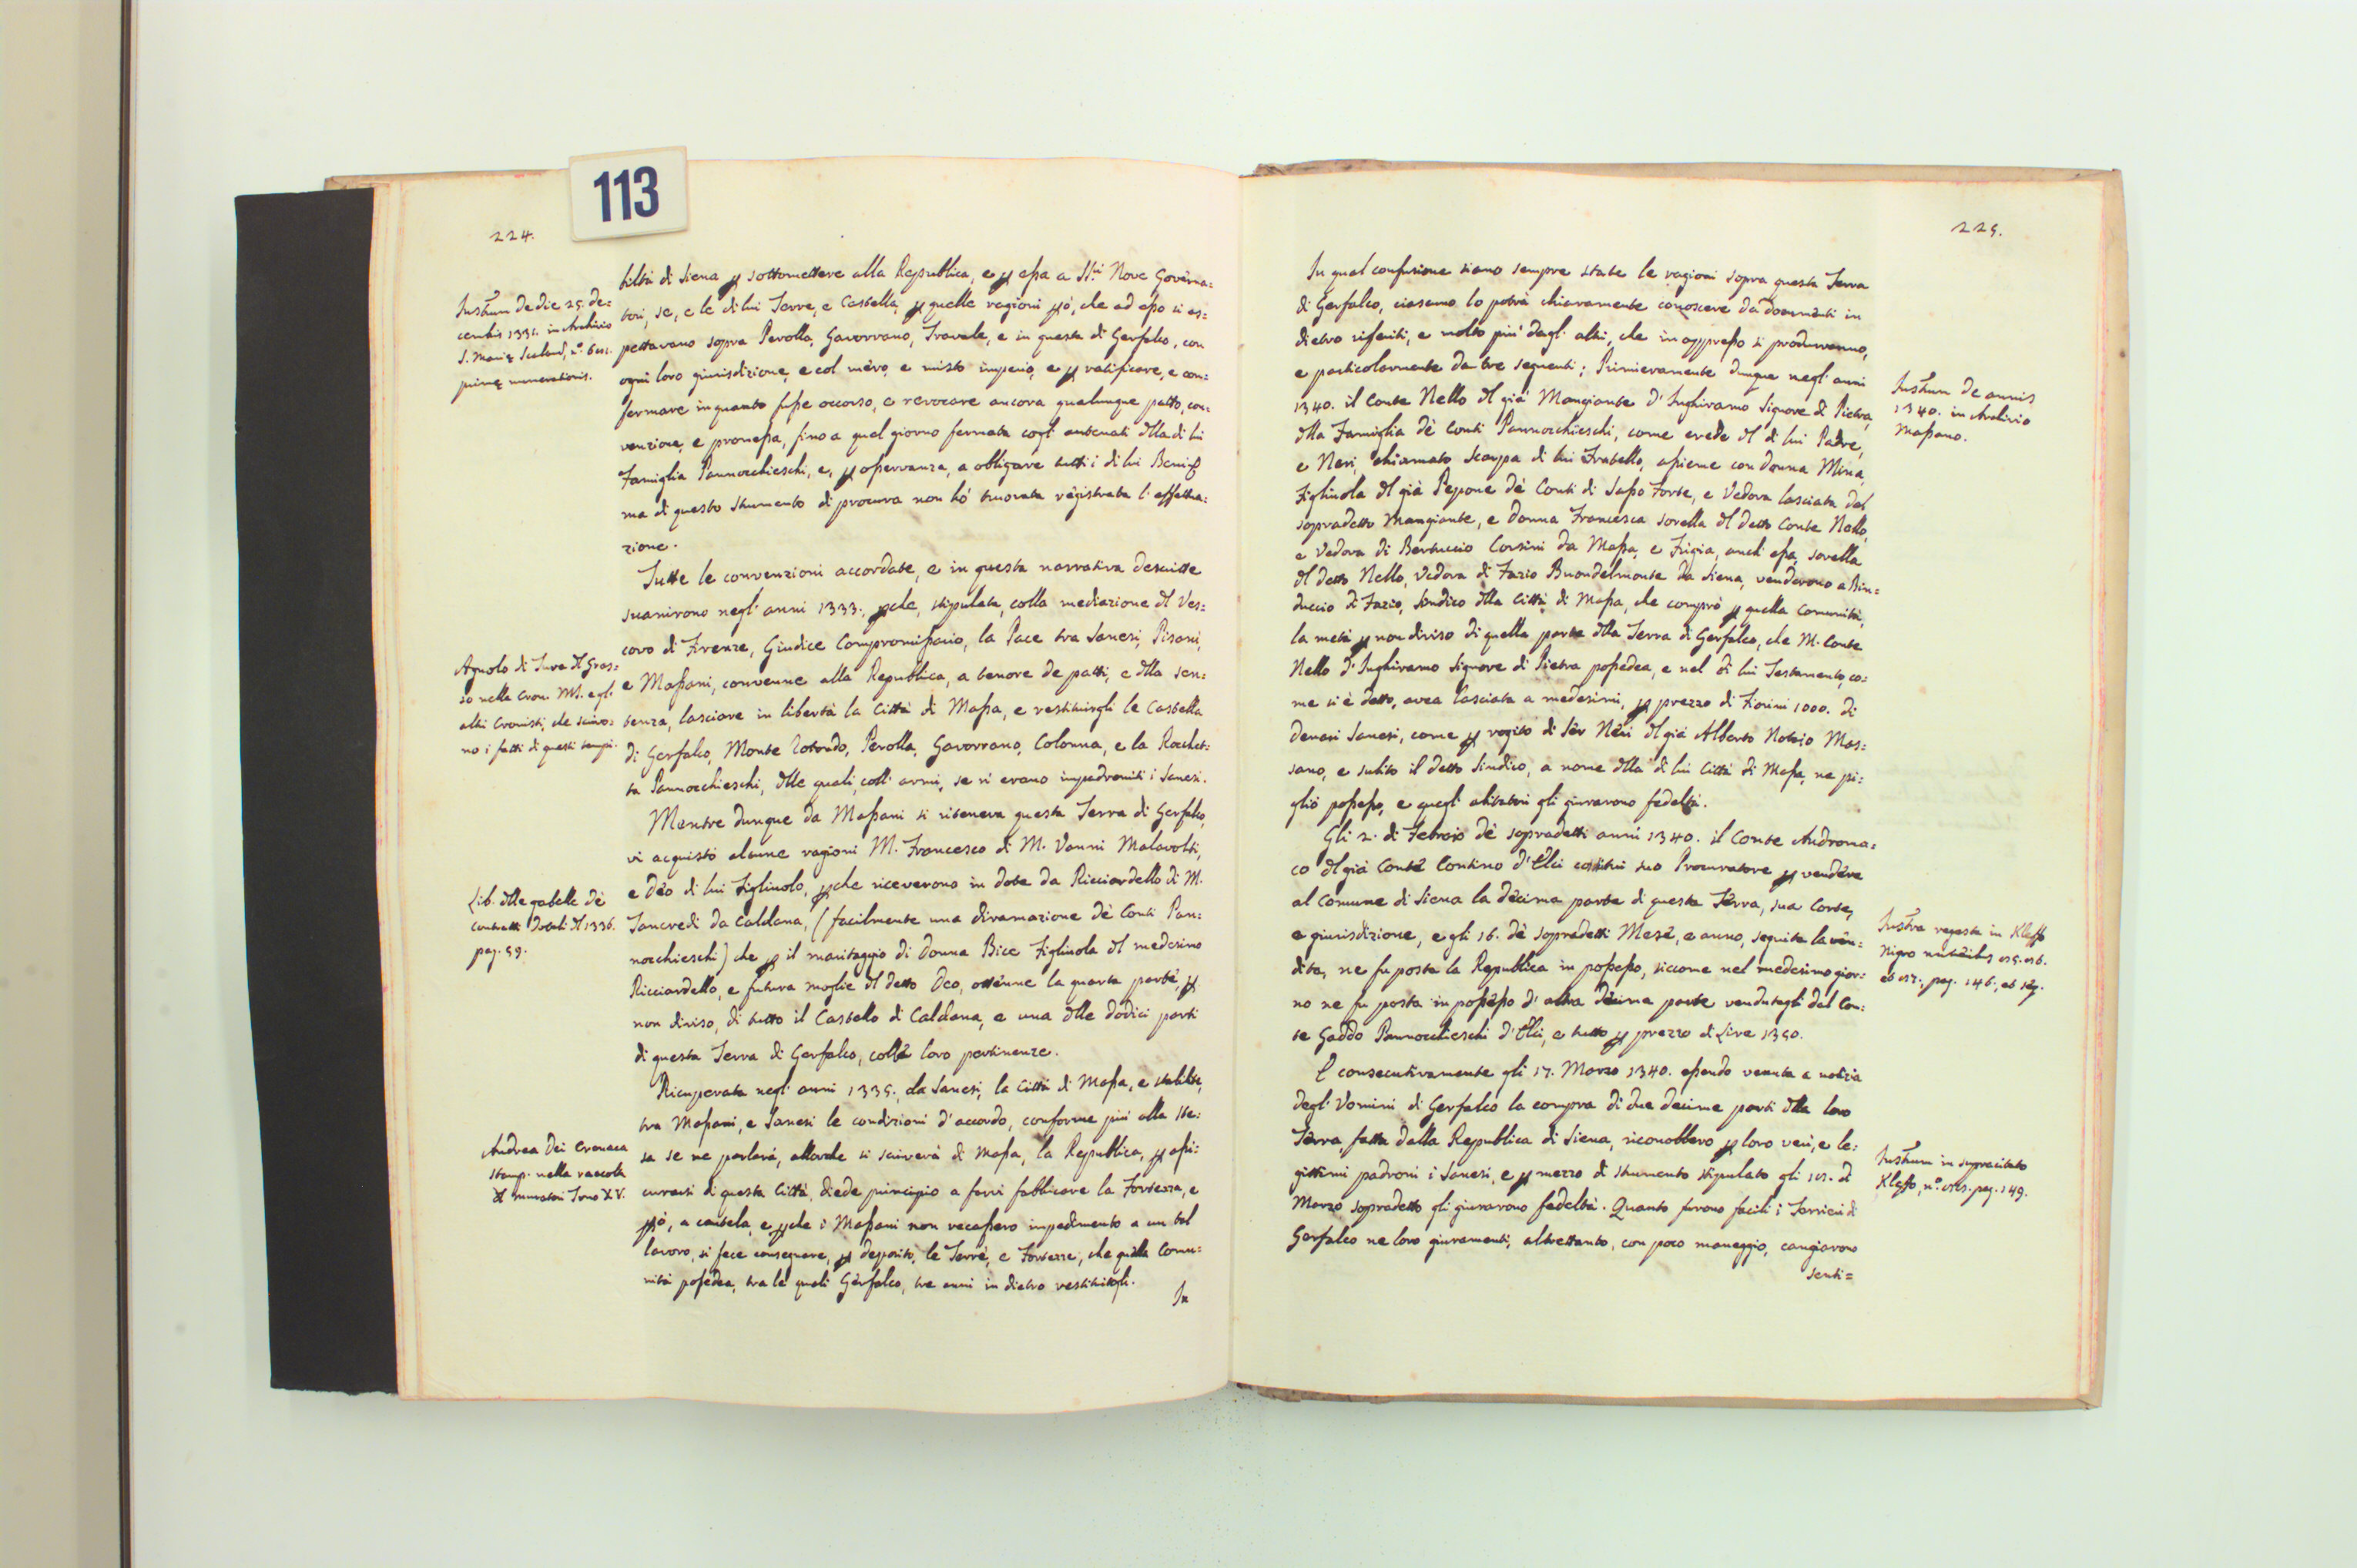 113
224.
biltà di Siena p sottomettere alla Republica, e p essa a SS.ri Nove Governa=
tori, se, e le di lui Terre, e Castella, p quelle ragioni pò, che ad esso si as=
pettavano sopra Perolla, Gavorrano, Travale, e in questa di Gerfalco, con
ogni loro giurisdizione, e col mero, e misto imperio, e p ratificare, e con=
fermare in quanto fusse occorso, e revocare ancora qualunque patto, con=
venzione, e promessa, fino a quel giorno fermata cogl' antenati dlla di lui
Famiglia Pannocchieschi, e, p osservanza, a obligare tutti i di lui Beni;
ma di questo Strumento di procura non hò truovata registrata l'effettua=
zione.
Tutte le convenzioni accordate, e in questa narrativa descritte
svanirono negl' anni 1333., pche, stipulata, colla mediazione dl Ves=
covo di Firenze, Giudice Compromissario, la Pace tra Sanesi, Pisani,
e Massani, convenne alla Republica, a tenore de patti, e dlla sen=
tenza, lasciare in libertà la Città di Massa, e restituirgli le Castella
di Gerfalco, Monte Rotondo, Perolla, Gavorrano, Colonna, e la Rocchet=
ta Pannocchieschi, dlle quali, coll' armi, se n' erano impadroniti i Sanesi.
Mentre dunque da Massani si riteneva questa Terra di Gerfalco,
vi acquistò alcune ragioni M. Francesco di M. Vanni Malavolti,
e Deo di lui Figliuolo, pche riceverono in dote da Ricciardello di M.
Tancredi da Caldana, (facilmente una diramazione dè Conti Pan=
nocchieschi) che p il maritaggio di Donna Bice Figliuola dl medesimo
Ricciardello, e futura moglie dl detto Deo, ottenne la quarta parte, p
non diviso, di tutto il Castello di Caldana, e una dlle dodici parti
di questa Terra di Gerfalco, colle loro pertinenze.
Ricuperata negl' anni 1335., da Sanesi, la Città di Massa, e stabilite,
tra Massani, e Sanesi le condizioni d'accordo, conforme piu alla ste=
sa se ne parlarà, allorche si scriverà di Massa, la Republica, p assi=
curarsi di questa Città, diede principio a farvi fabbricare la Fortezza, e
pò, a cautela, e pche i Massani non recassero impedimento a un tal
lavoro, si fece consegnare, p deposito, le Terre, e Fortezze, che quella Comu=
nità possedea, tra le quali Gerfalco, tre anni in dietro restituitogli.
In
Instrum de die 25. de=
cembris 1331. in Archivio
S. Marię Scalarũ, nº. 602.
primę numerationis.
Agnolo di Tura dl Gras=
so nella Cron. MS. e gl'
altri Cronisti, che scrivo=
no i fatti di questi tempi.
Lib. dlle gabelle dè
contratti Dotali dl 1336.
pag. 59.
Andrea Dei Cronaca
stamp. nella raccolta
dl muratori Tomo XV.
225.
In qual confusione siano sempre state le ragioni sopra questa Terra
di Gerfalco, ciascuno lo potrà chiaramente conoscere da documenti in
dietro riferiti, e molto piu' dagl' altri, che in appresso si produrranno,
e particolarmente da tre seguenti; Primieramente dunque negl' anni
1340. il Conte Nello dl già Mangiante d'Inghiramo Signore di Pietra,
dlla Famiglia dè Conti Pannocchieschi, come erede dl di lui Padre,
e Neri, chiamato Scarpa di lui Fratello, assieme con donna Mina,
Figliuola dl già Pepone dè Conti di Sasso Forte, e Vedova lasciata dal
sopradetto Mangiante, e donna Francesca sorella dl detto Conte Nello,
e Vedova di Bertuccio Corsini da Massa, e Frigia, anch' essa, sorella
dl detto Nello, Vedova di Fazio Buondelmonte da Siena, venderono a Bin=
duccio di Fazio, Sindico dlla Città di Massa, che comprò p quella Comunità,
la metà p non diviso di quella parte dlla Terra di Gerfalco, che M. Conte
Nello d'Inghiramo Signore di Pietra possedea, e nel di lui Testamento, co=
me si è detto, avea lasciata a medesimi, p prezzo di Fiorini 1000. di
denari Sanesi, come p rogito di Ser Neri dl già Alberto Notaio Mas=
sano, e subito il detto Sindico, a nome dlla di lui Città di Massa, ne pi=
gliò possesso, e quegl' abitatori gli giurarono fedeltà.
Gli 2. di Febraio dè sopradetti anni 1340. il Conte Androma=
co dl già Conte Contino d'Elci costituì suo Procuratore p vendere
al Comune di Siena la decima parte di questa Terra, sua Corte,
e giurisdizione, e gli 16. dè sopradetti Mese, e anno, seguita la ven=
dita, ne fu posta la Republica in possesso, siccome nel medesimo gior=
no ne fu posta in possesso d'altra decima parte vendutagli dal Con=
te Gaddo Pannocchieschi d'Elci, e tutto p prezzo di Lire 1350.
E consecutivamente gli 17. Marzo 1340. essendo venuta a notizia
degl' Vomini di Gerfalco la compra di due decime parti dlla loro
Terra, fatta dalla Republica di Siena, riconobbero p loro veri, e le=
gittimi padroni i Sanesi, e p mezzo di strumento stipulato gli di
Marzo sopradetto gli giurarono fedeltà. Quanto furono facili i Terrieri di
Gerfalco ne loro giuramenti, altrettanto, con poco maneggio, cangiarono
senti=
Instrum de annis
1340. in Archivio
Massano.
Instra regesta in Kleffo
Nigro
pag. 146., et seq.
Instrum in supracitato
Kleffo, nº. pag. 149.